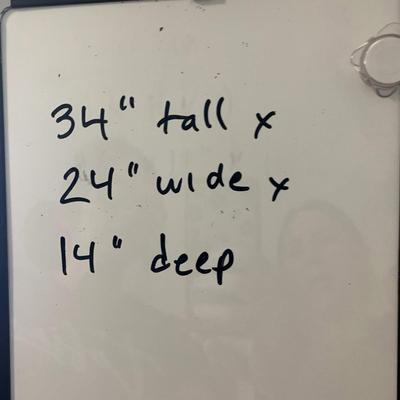 34" tall x
24" wide x
14" deep